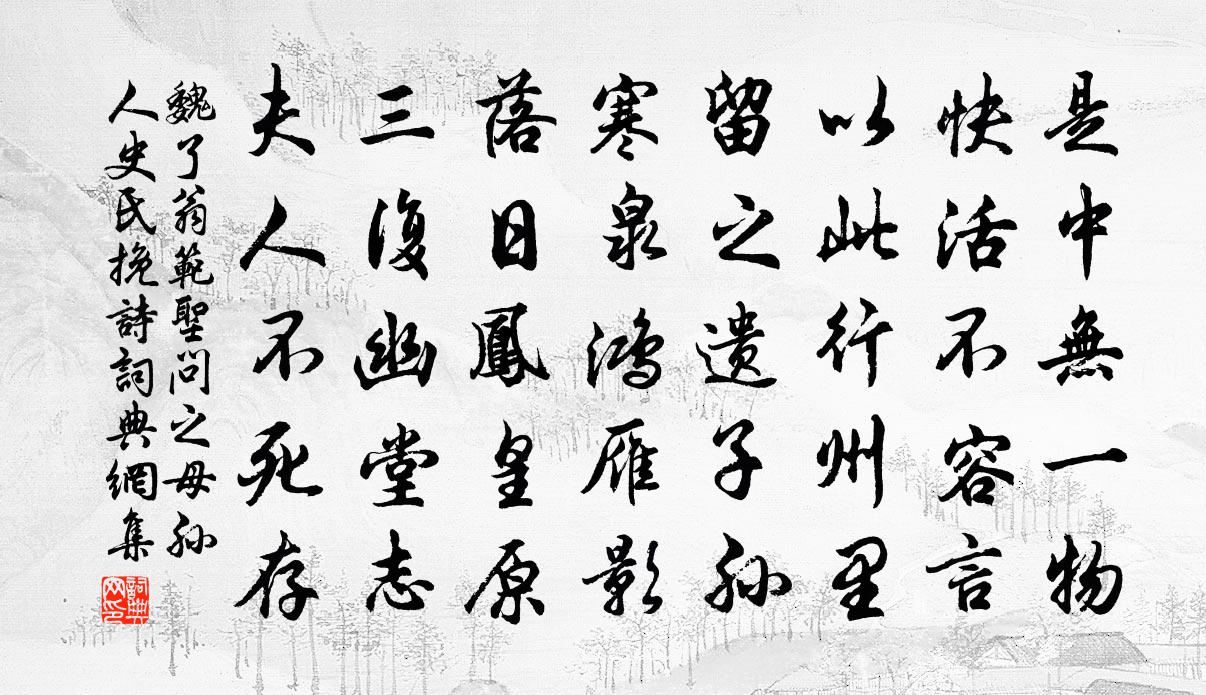 是中無一物
快活不容言
以此行州里
留之遺子孫
寒泉鴻雁影
落日鳳皇原
三復幽堂志
夫人不死存
魏了翁範聖問之母孫
人史氏挽詩詞典網集
詞典網印